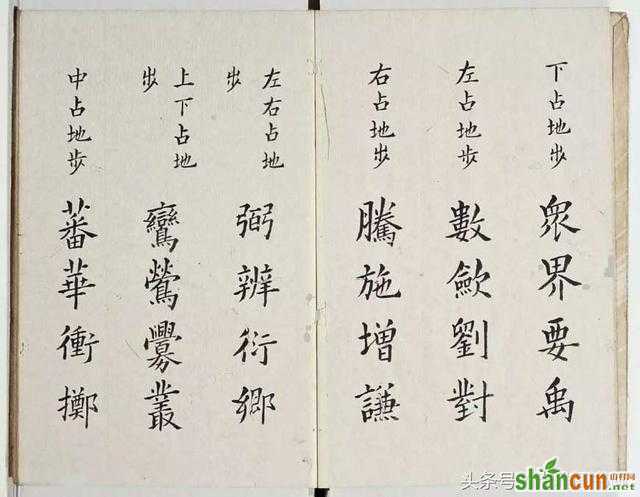 下占地步
衆界要禹
左占地步
數歛劉對
右占地步
騰施增謙
左右占地
步
弼辨衍鄉
上下占地
步
鸞鶯爨叢
中占地步
蕃華衝擲
头条号
shancun
山村网
.net